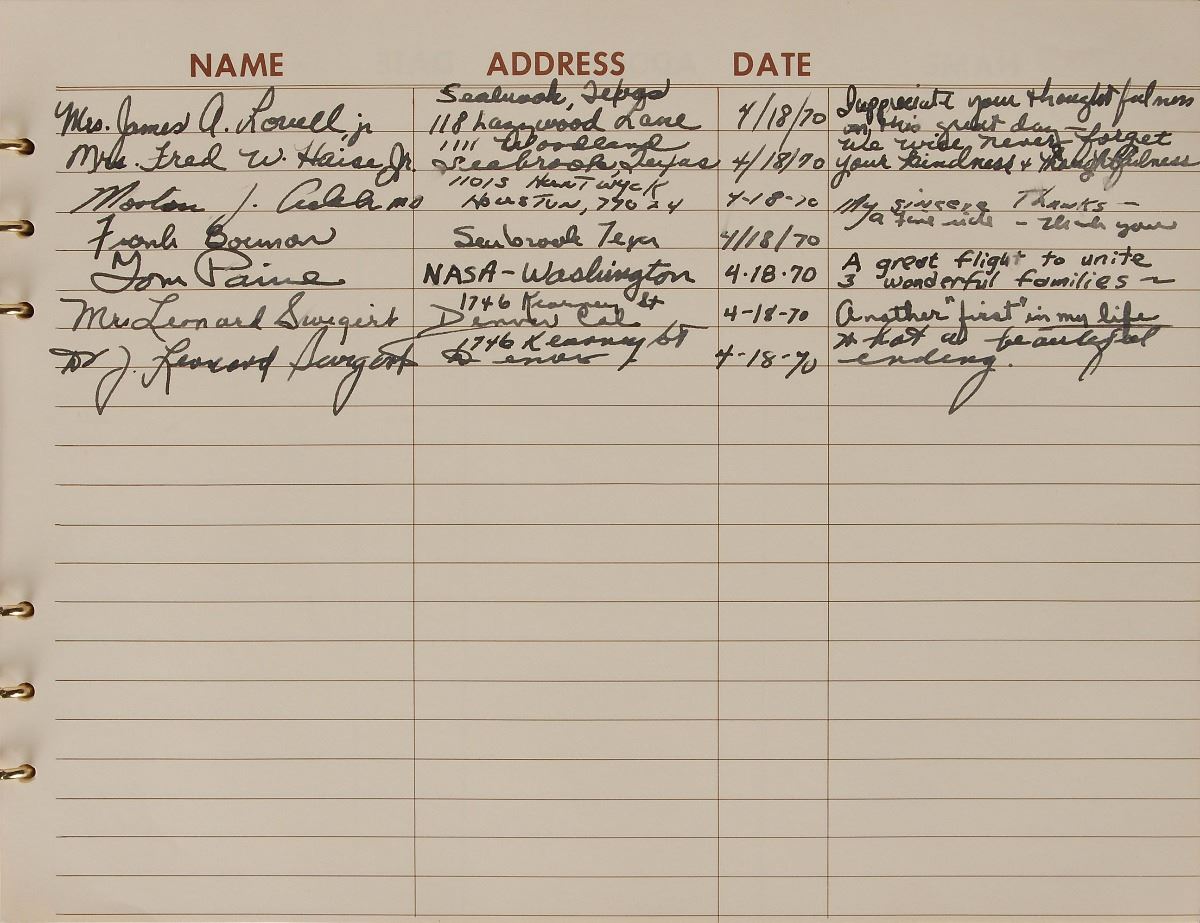 NAME ADDRESS DATE
Seabrook, Texas
Mrs. James A. Lovell, jr 118 Lazywood Lane 4/18/70 I appreciate your thoughtfulness
on this great day —
1111 Woodland We will never forget
Mrs. Fred W. Haise, Jr. Seabrook, Texas 4/18/70 your kindness & thoughtfulness
11015 HUNTWYCK
Morton J. MD HOUSTON, 77024 4-18-70 My sincere Thanks —
a fine ride - thank you
Frank Borman Seabrook Texas 4/18/70
Tom Paine NASA - Washington 4.18.70 A great flight to unite
3 wonderful families ~
1746 Kearney St
Mrs Leonard Swigert Denver Col 4-18-70 Another "first" in my life
1746 Kearney St What a beautiful
Dr J. Leonard Swigert Denver 4-18-70 ending.